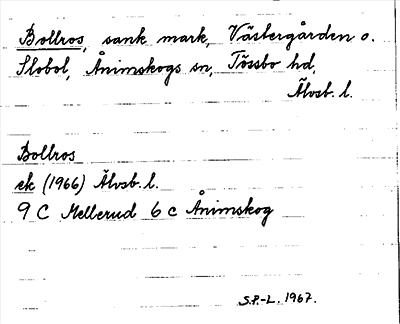 Bollros, sank mark, Västergården o.
Slobol, Ånimskogs sn, Tössbo hd,
Älvsb. l.
Bollros
ek (1966) Älvsb. l.
9 C Mellerud 6 c Ånimskog
S.P.-L. 1967.